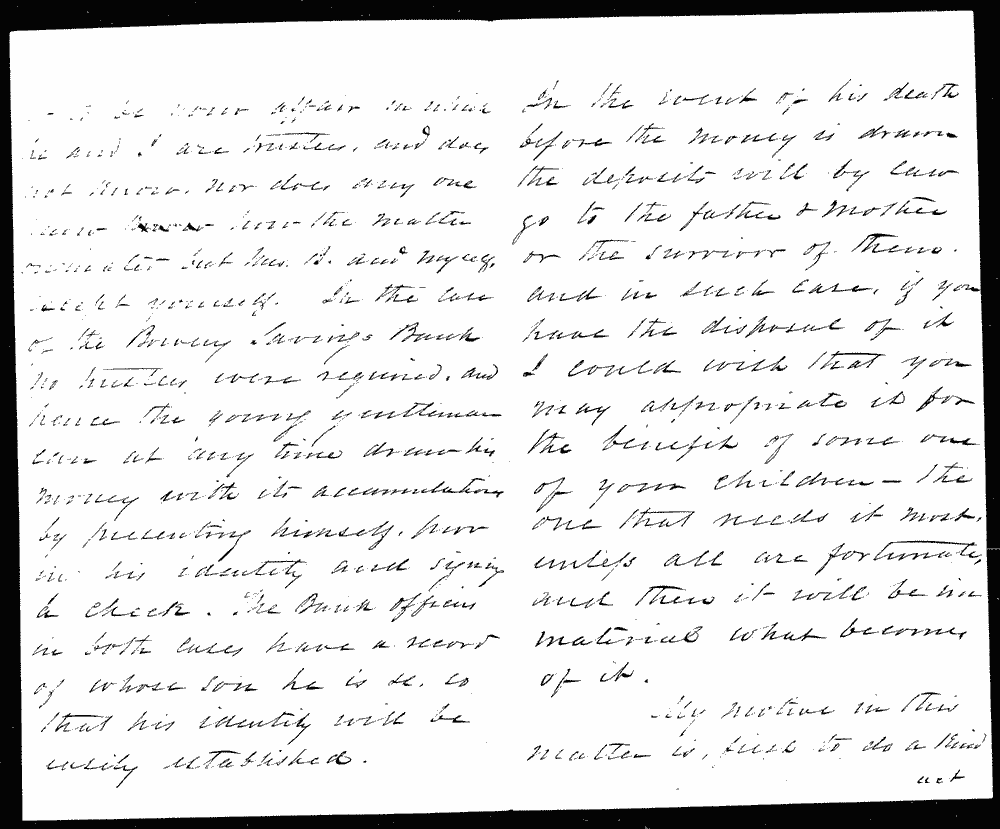 to be your affair in which
he and I are trustees, and does
not know, nor does any one
know how the matter
originated but Mrs. B. and myself,
except yourself. In the case
of the Bowery Savings Bank
no trustees were required, and
hence the young gentleman
can at any time draw his
money with its accumulations
by presenting himself, prov
ing his identity and signing
a check. The Bank officers
in both cases have a record
of whose son he is &c. so
that his identity will be
easily established.
In the event of his death
before the money is drawn
the deposits will by law
go to the father & mother
or the survivor of them.
and in such case, if you
have the disposal of it
I could wish that you
may appropriate it for
the benefit of some one
of your children - the
one that needs it most,
unless all are fortunate,
and then it will be im
material what becomes
of it.
My motive in this
matter is, first to do a kind
act